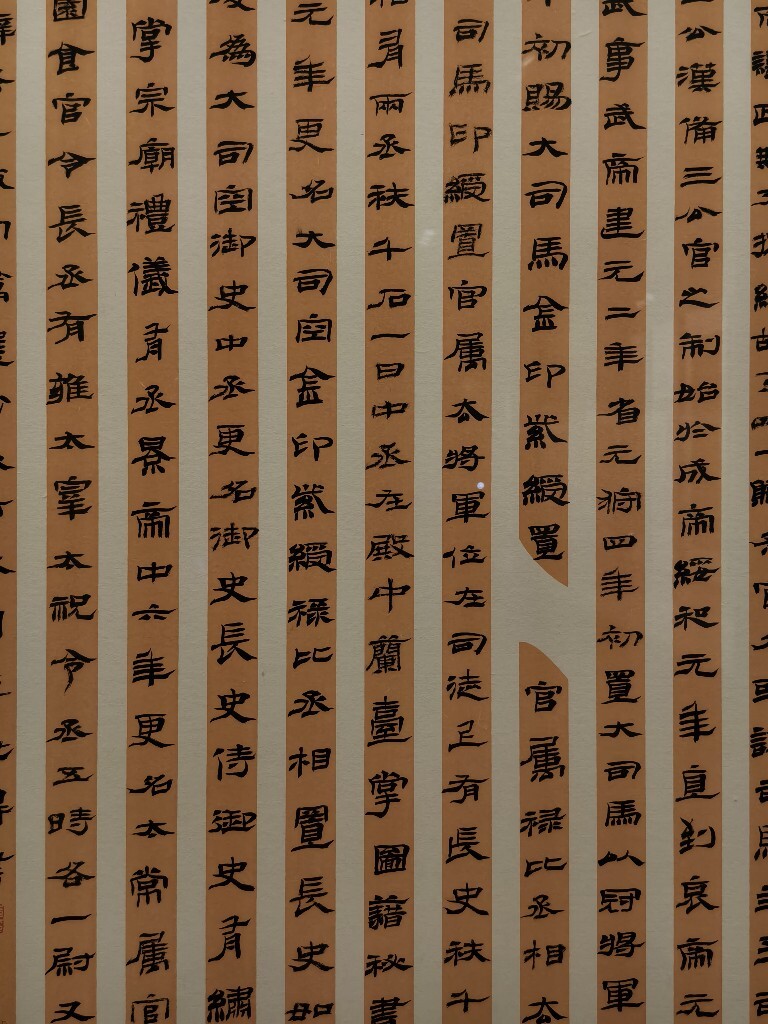 公漢備三公官之制始於成帝綏和元年直到哀帝元
武事武帝建元二年省元狩四年初置大司馬以冠將軍
初賜大司馬金印紫綬置官屬祿比丞相去
司馬印綬置官屬去將軍位在司徒上有長史秩千
有兩丞秩千石一曰中丞在殿中蘭臺掌圖籍秘書
元年更名大司空金印紫綬祿比丞相置長史如
為大司空御史中丞更名御史長史侍御史有繡
掌宗廟禮儀有丞景帝中六年更名太常屬官
園食官令長丞有雍太宰太祝令丞五時各一尉又